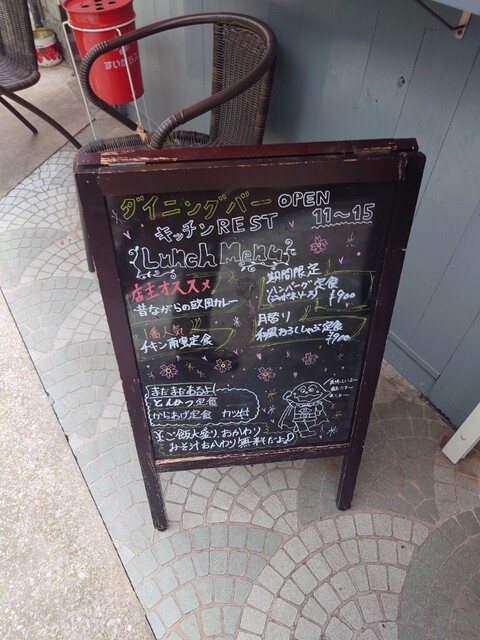 すいがら入れ
ダイニングバー OPEN
キッチンREST 11～15
Lunch Menu
店主オススメ
昔ながらの欧風カレー
1番人気
チキン南蛮定食
期間限定
ハンバーグ定食
¥900
月替り
和風おろししゃぶ定食
¥900
まだまだあるよ!
とんかつ定食
からあげ定食 カツ丼
ご飯大盛り、おかわり
みそ汁おかわり無料だよ♪